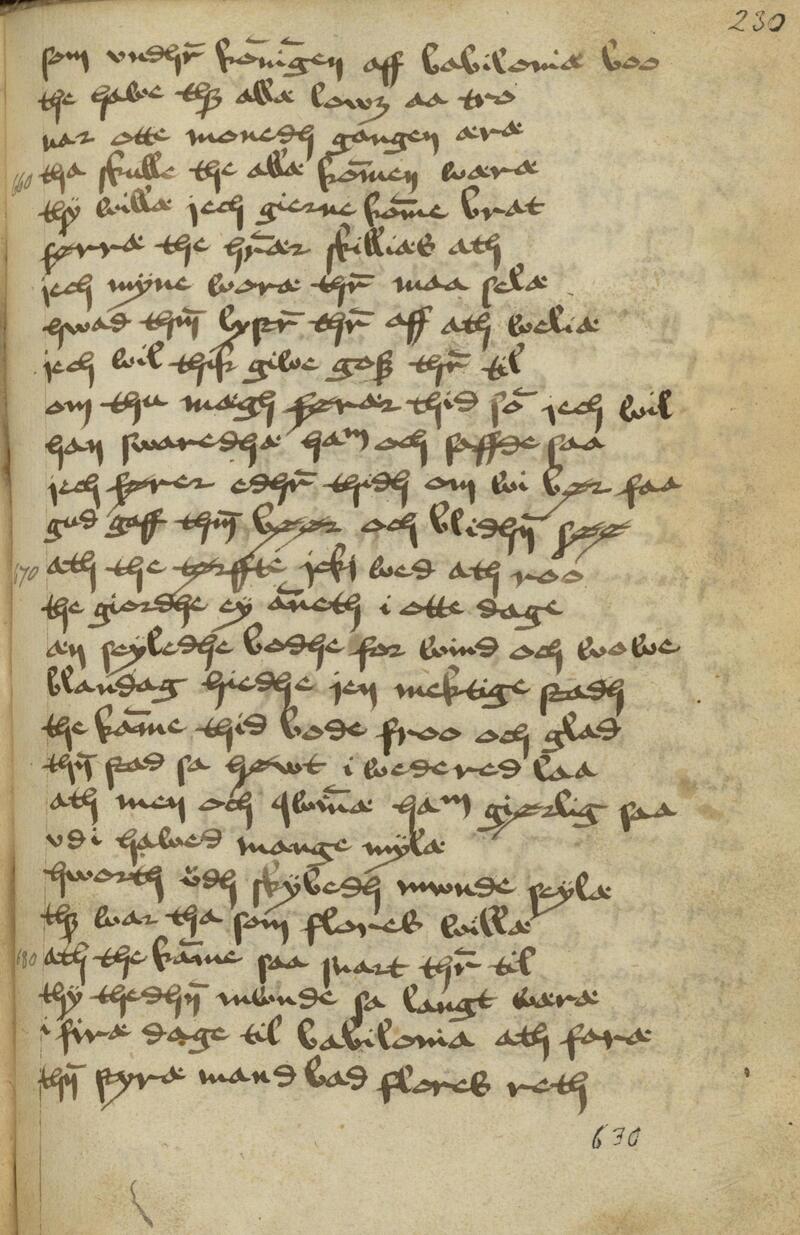 230
som vndhr̄ kōnīgen aff babilonia boo
the hawe thꝫ allæ lowꝫ aa tro
nar otte monedh gangen æræ
660 tha skulle the allæ kōmen wæræ
thy willæ jech gierne kōme brat
førræ the hr̄ær skilliæs ath
jech myne woræ thr̄ maa selæ
hwad thm̄ lystr̄ thr̄ aff ath weliæ
jech wil thik giwe goſꝫ thr̄ til
om thu mægh førær thid sō jech wil
han swaredhæ haᵐ och saffde saa
jech fører edhr̄ thidh om wi bør faa
gud gaff thm̄ bøør och blidhn̄ søø
670 ath the tørffte jckj wed ath roo
the giordhe ey ān̄eth i otte dage
æn seyledhe bodhe for wind och wowe
blandag hiedhe jen mektige stadh
the kām̄e thid bode froo och glad
thn̄ stad sa høwt i wedered laa
ath men och qwīn̄æ haᵐ giørlig saa
vdi hawed mange mylæ
hworth ødh skybedh mwnde seylæ
thꝫ war tha som flores willæ
680 ath the kām̄e saa snart thr̄ til
thy thedhn̄ mwnde sa langt wæræ
i firæ dage til babilonia ath faræ
thn̄ styræ mand bad flores reth
630